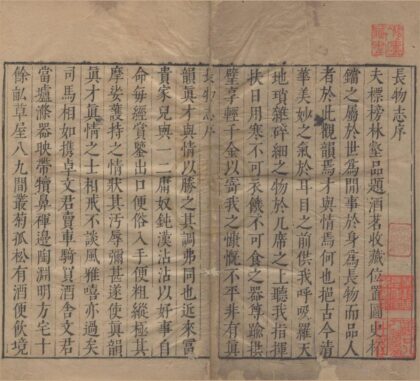 長物志序
夫標榜林壑品題酒茗收藏位置圖史杯
鐺之屬於世爲閒事於身爲長物而品人
者於此觀韻焉才與情焉何也挹古今清
華美妙之氣於耳目之前供我呼吸羅天
地瑣雜碎細之物於几席之上聽我指揮
挾日用寒不可衣饑不可食之器尊踰拱
璧享輕千金以寄我之慷慨不平非有眞
韻眞才與情以勝之其調弗同也近來富
長物志序
貴家兒與一二庸奴鈍漢沾沾以好事自
命每經賞鑒出口便俗入手便粗縱極其
摩娑護持之情狀其汚辱彌甚遂使眞韻
眞才眞情之士相戒不談風雅嘻亦過矣
司馬相如攜卓文君賣車騎買酒舍文君
當壚滌器映帶犢鼻褌邊陶淵明方宅十
餘畝草屋八九間叢菊孤松有酒便飲境